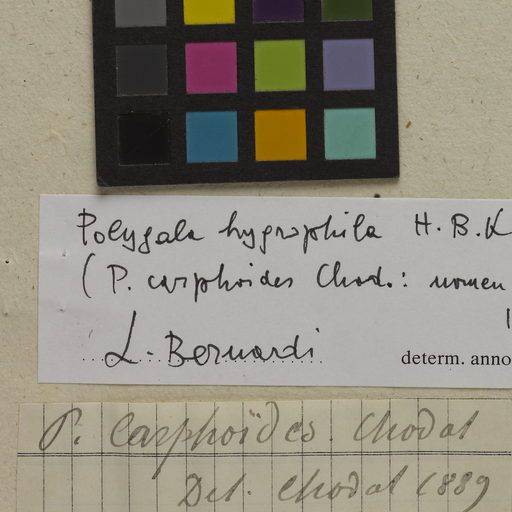 Polygala hygrophila H.B.K
(P. carphoides Chod.: nomen
L. Bernardi
determ. anno
P. Carphoïdes. Chodat
Det. Chodat 1889